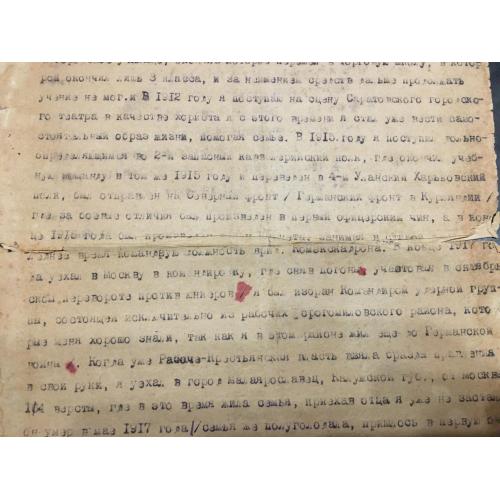 рой окончил лишь 3 класса, и за неимением средств дальше продолжать
учение не мог.и В 1912 году я поступил на сцену Саратовского городско-
го театра в качестве хориста и с этого времени я стал уже вести само-
стоятельный образ жизни, помогая семье. В 1915 году я поступил вольно-
определяющимся во 2-й запасный кавалерийский полк, где окончил учеб-
ную команду в том же 1915 году и переведен в 4-й Уланский Харьковский
полк, был отправлен на Северный фронт / Германский фронт в Курляндии /
где за боевые отличия был произведен в первый офицерский чин, а в кон-
це года был
время командную должность врид. Комэскадрона. В конце 1917 го
да уехал в Москву в командировку, где сняв погоны участвовал в октябрь
ском перевороте против юнкеров и был избран Командиром ударной груп-
пы, состоящей исключительно из рабочих Дорогомиловского района, кото
рые меня хорошо знали, так как я в этом районе жил еще до Германской
войны. Когда уже Рабоче-Крестьянская власть взяла бразды правления
в свои руки, я уехал в город Малоярославец, Калужской губ., от Москвы
104 версты, где в это время жила семья, приехав отца я уже не застал
он умер в мае 1917 года// семья же полуголодала, пришлось в первую